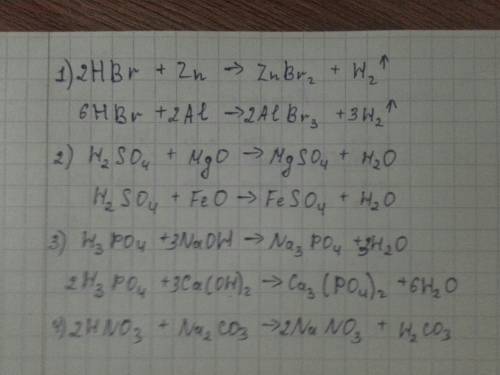 1) 2HBr + Zn → ZnBr₂ + H₂↑
6HBr + 2Al → 2AlBr₃ + 3H₂↑
2) H₂SO₄ + MgO → MgSO₄ + H₂O
H₂SO₄ + FeO → FeSO₄ + H₂O
3) H₃PO₄ + 3NaOH → Na₃PO₄ + 3H₂O
2H₃PO₄ + 3Ca(OH)₂ → Ca₃(PO₄)₂ + 6H₂O
4) 2HNO₃ + Na₂CO₃ → 2NaNO₃ + H₂CO₃